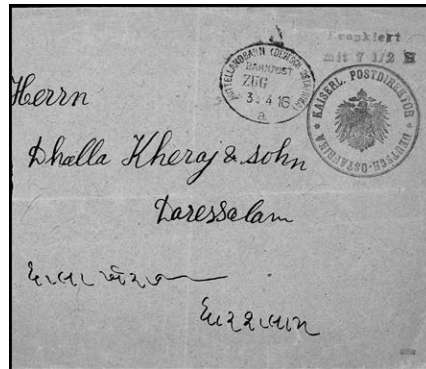 Frankiert
mit 7 1/2 H
MITTELLANDBAHN (DEUTSCH-OSTAFRIKA)
BAHNPOST
ZUG
3.4 16
a.
* KAISERL. POSTDIREKTOR * DEUTSCH-OSTAFRIKA
Herrn
Dhalla Kheraj & sohn
Daressalam
ધાલા ખેરાજ
દારસલામ